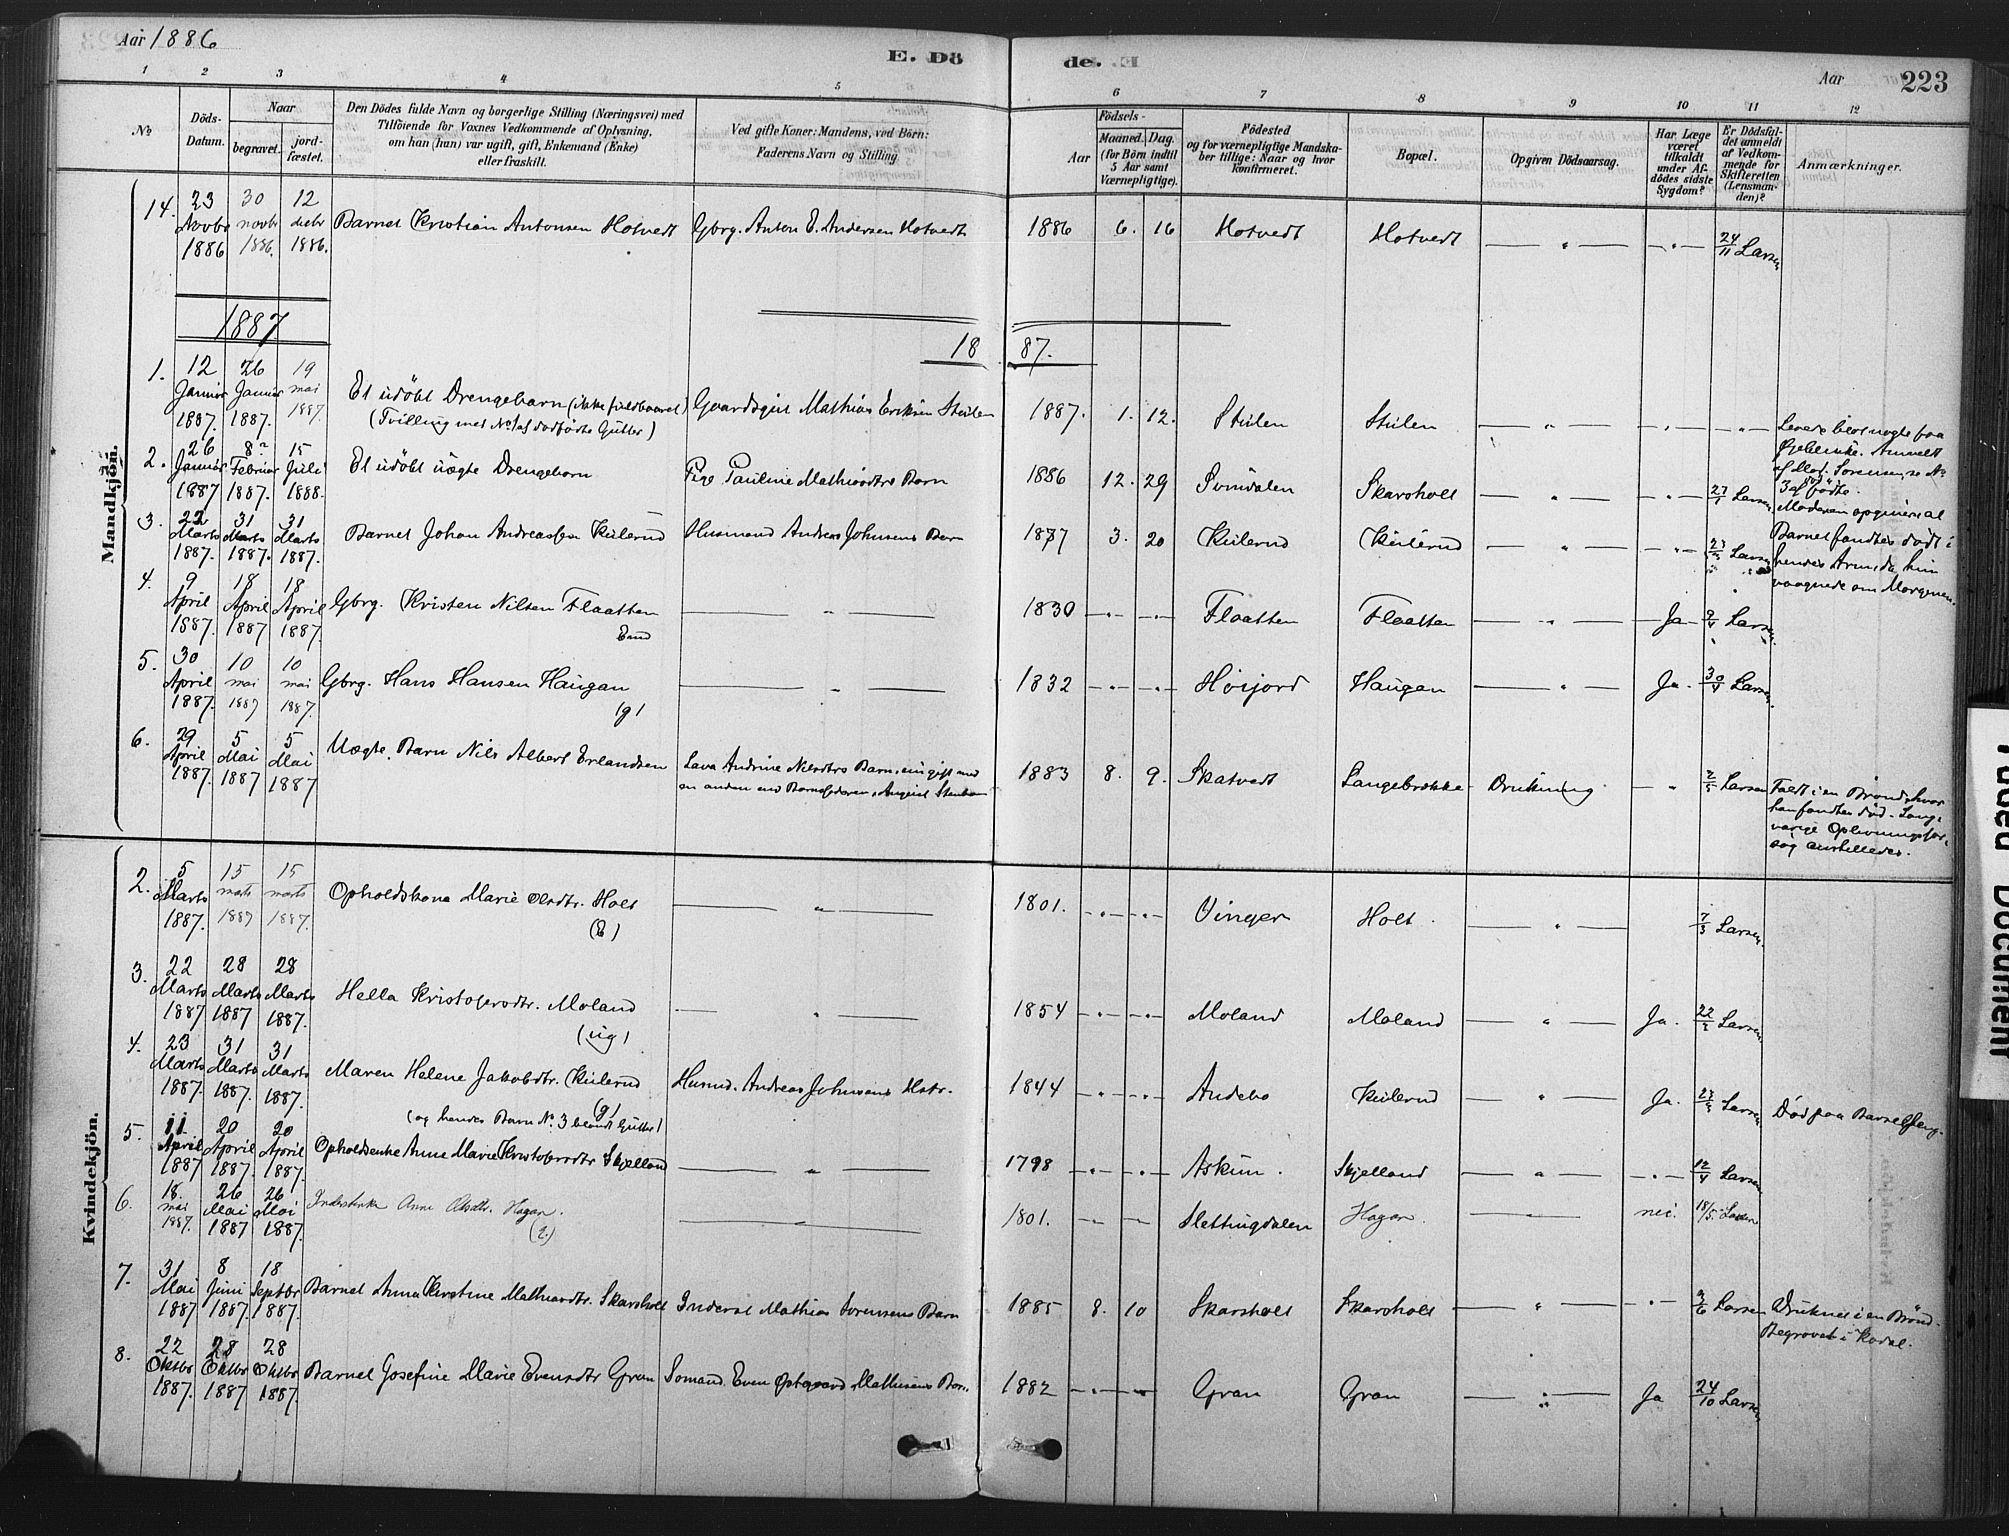 Aar 1886
E. Dö
de.
Aar
223
1 2 3 4 5 6 7 8 9 10 11 12
№
Döds-Datum.
Naar
begravet.
jord-fæstet.
Den Dödes fulde Navn og borgerlige Stilling (Næringsvei) med
Tilföiende for Voxnes Vedkommende af Oplysning,
om han (hun) var ugift, gift, Enkemand (Enke)
eller fraskilt.
Ved gifte Koner: Mandens, ved Börn:
Faderens Navn og Stilling
Födsels-
Aar
Maaned. Dag.
(for Börn indtil
5 Aar samt
Værnepligtige).
Födested
og for værnepligtige Mandska-
ber tillige: Naar og hvor
konfirmeret.
Bopæl.
Opgiven Dödsaarsag.
Har Læge
været
tilkaldt
under Af-
dödes sidste
Sygdom?
Er Dödsfal-
det anmeldt
af Vedkom-
mende for
Skifteretten
(Lensman-
den)?
Anmærkninger.
Mandkjön.
14. 23 Novbr 1886 30 novbr 1886. 12 decbr 1886. Barnet Kristian Antonsen Hotvedt Gbrg. Anton E. Andersen Hotvedt 1886 6. 16 Hotvedt Hotvedt — " — — " — 24/11 Larsen
1887
18 87.
1. 12 Januar 1887. 26 Januar 1887. 19 mai 1887. Et udöbt Drengebarn (ikke fuldbaaret)
(Tvilling med No 1 af dødfødte Gutter) Gaardsgut Mathias Eriksen Stulen 1887. 1. 12. Stulen Stulen — " — — " — — " — Levede blot nogle faa
Øieblikke. Anmeldt
2. 26 Januar 1887 8 Februar 1887. 15 Juli 1888. Et udöbt uægte Drengebarn Pige Pauline Mathiasdtrs Barn 1886 12. 29 Svindalen Skarsholt — " — — " — 27/1 Larsen
3 af födte.
Moderen opgiver at
Barnet fandtes dödt i
hendes Arm, da hun
vaagnede om Morgenen.
3. 22 Marts 1887. 31 Marts 1887. 31 Marts 1887. Barnet Johan Andreassen Kulerud Husmand Andreas Johnsens Barn 1877 3. 20 Kulerud Kulerud — " — — " — 23/3 Larsen
4. 9 April 1887. 18 April 1887 18 April 1887. Gbrg. Kristen Nilsen Flaatten
Emd — " — 1830 — " — — " — Flaatten Flaatten — " — Ja 9/4 Larsen.
5. 30 April 1887. 10 mai 1887 10 mai 1887. Gbrg. Hans Hansen Haugan
(g) — " — 1832 — " — — " — Høijord Haugan — " — Ja. 30/4 Larsen.
6. 29 April 1887. 5 Mai 1887 5 Mai 1887 Uægte Barn Nils Albert Erlandsen Lava Andrine Nilsdtrs Barn, nu gift med
en anden end Barnefaderen, August Stenbom 1883 8. 9. Skatvedt Langebrække Drukning — " 2/5 Larsen Faldt i en Brønd, hvor
han fandtes död. Lang-
varige Oplivningsfor-
søg anstilledes.
Kvindekjön.
2. 5 Marts 1887. 15 marts 1887 15 marts 1887. Opholdskone Marie Olsdtr. Holt
(E) — " — 1801. — " — — " — Vinger Holt — " — 7/3 Larsen.
3. 22 Marts 1887 28 Marts 1887 28 Marts 1887. Hella Kristofersdtr. Moland
(ug) — " — 1854 — " — — " — Moland Moland — " — Ja. 22/3 Larsen
4. 23 Marts 1887. 31 Marts 1887. 31 Marts 1887. Maren Helene Jakobdtr. Kulerud
(g)
(og hendes Barn No. 3 blandt Gutter) Husmd. Andreas Johnsens Hstr. 1844 — " — — " — Andebo Kulerud — " — Ja. 23/3 Larsen Død paa Barselseng.
5. 11 April 1887 20 April 1887. 20 April 1887. Opholdsenke Anne Marie Kristofersdtr Skjelland — " — 1798 — " — — " — Askim. Skjelland — " — — " — 12/4 Larsen
6. 18. mai 1887. 26 Mai 1887 26 Mai 1887. Inderstenke Anne Olsdtr. Hagan.
— " — 1801. — " — — " — Slettingdalen Hagan — " — nei. 18/5. Larsen
7. 31 Mai 1887 8 Juni 1887. 18 Septbr 1887. Barnet Anna Kirstine Mathiasdtr. Skarsholt Inderst Mathias Sorensens Barn 1885 8. 10 Skarsholt Skarsholt — " — — " — 3/6 Larsen Druknet i en Brönd.
Begravet i Kodal.
8. 22 Oktbr 1887. 28 Oktbr 1887 28 Oktbr 1887. Barnet Josefine Marie Evensdtr Gran Sømand Even Mathisens Barn 1882 — " — — " — Gran Gran — " — Ja 24/10 Larsen